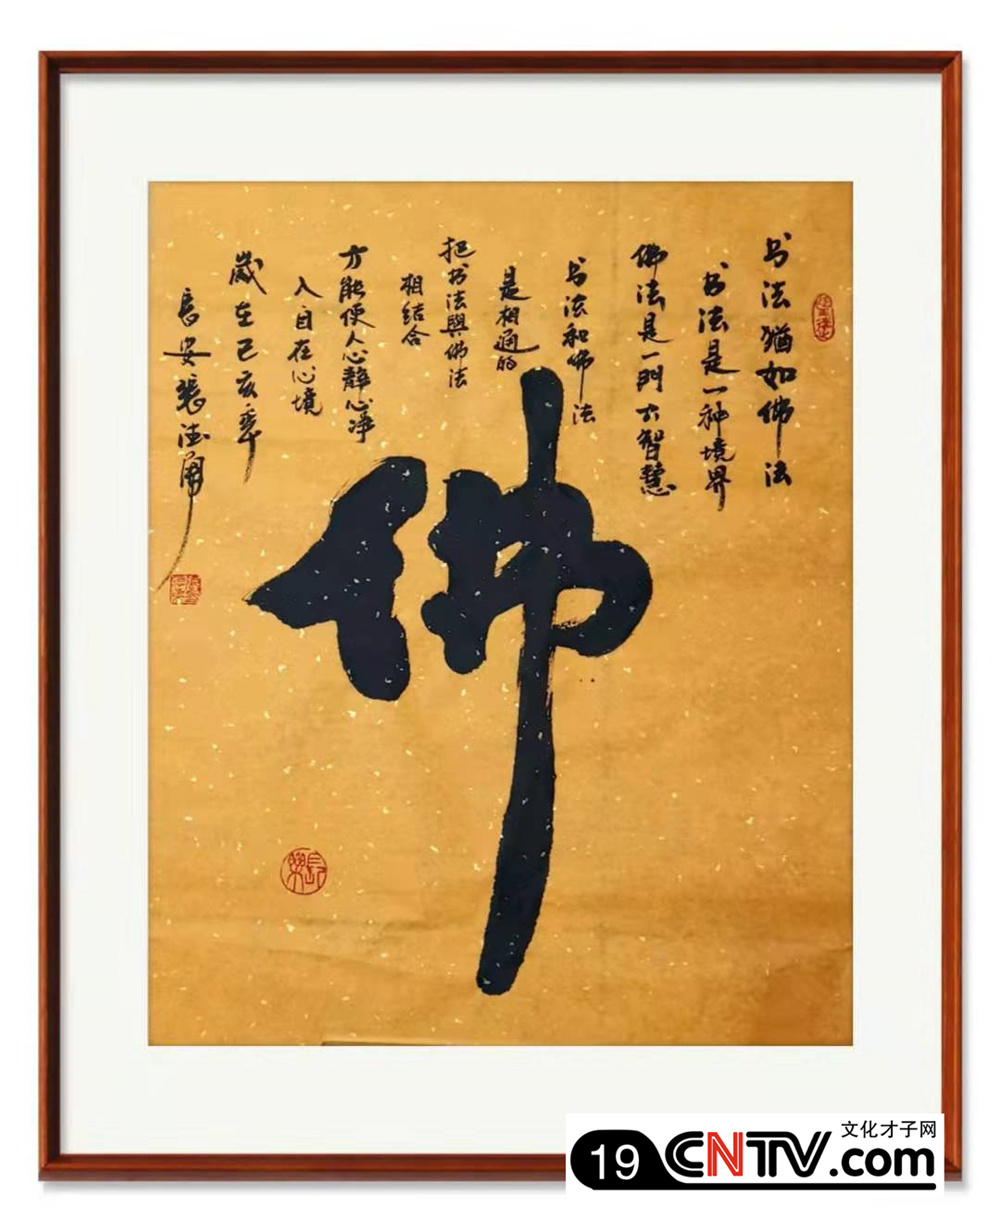 书法犹如佛法
书法是一种境界
佛法是一門大智慧
书法和佛法
是相通的
把书法與佛法
相结合
方能使人心静心净
入自在心境
歲在己亥年
長安張德勇
佛
長樂
文化才子网
19 CNTV.com